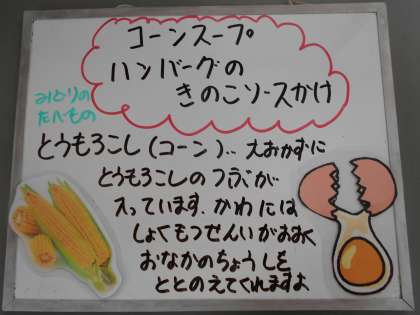 コーンスープ
ハンバーグの
きのこソースかけ
みどりの
たべもの
とうもろこし(コーン)… 大おかずに
とうもろこしのつぶが
入っています。かわには
しょくもつせんいがおおく
おなかのちょうしを
ととのえてくれますよ